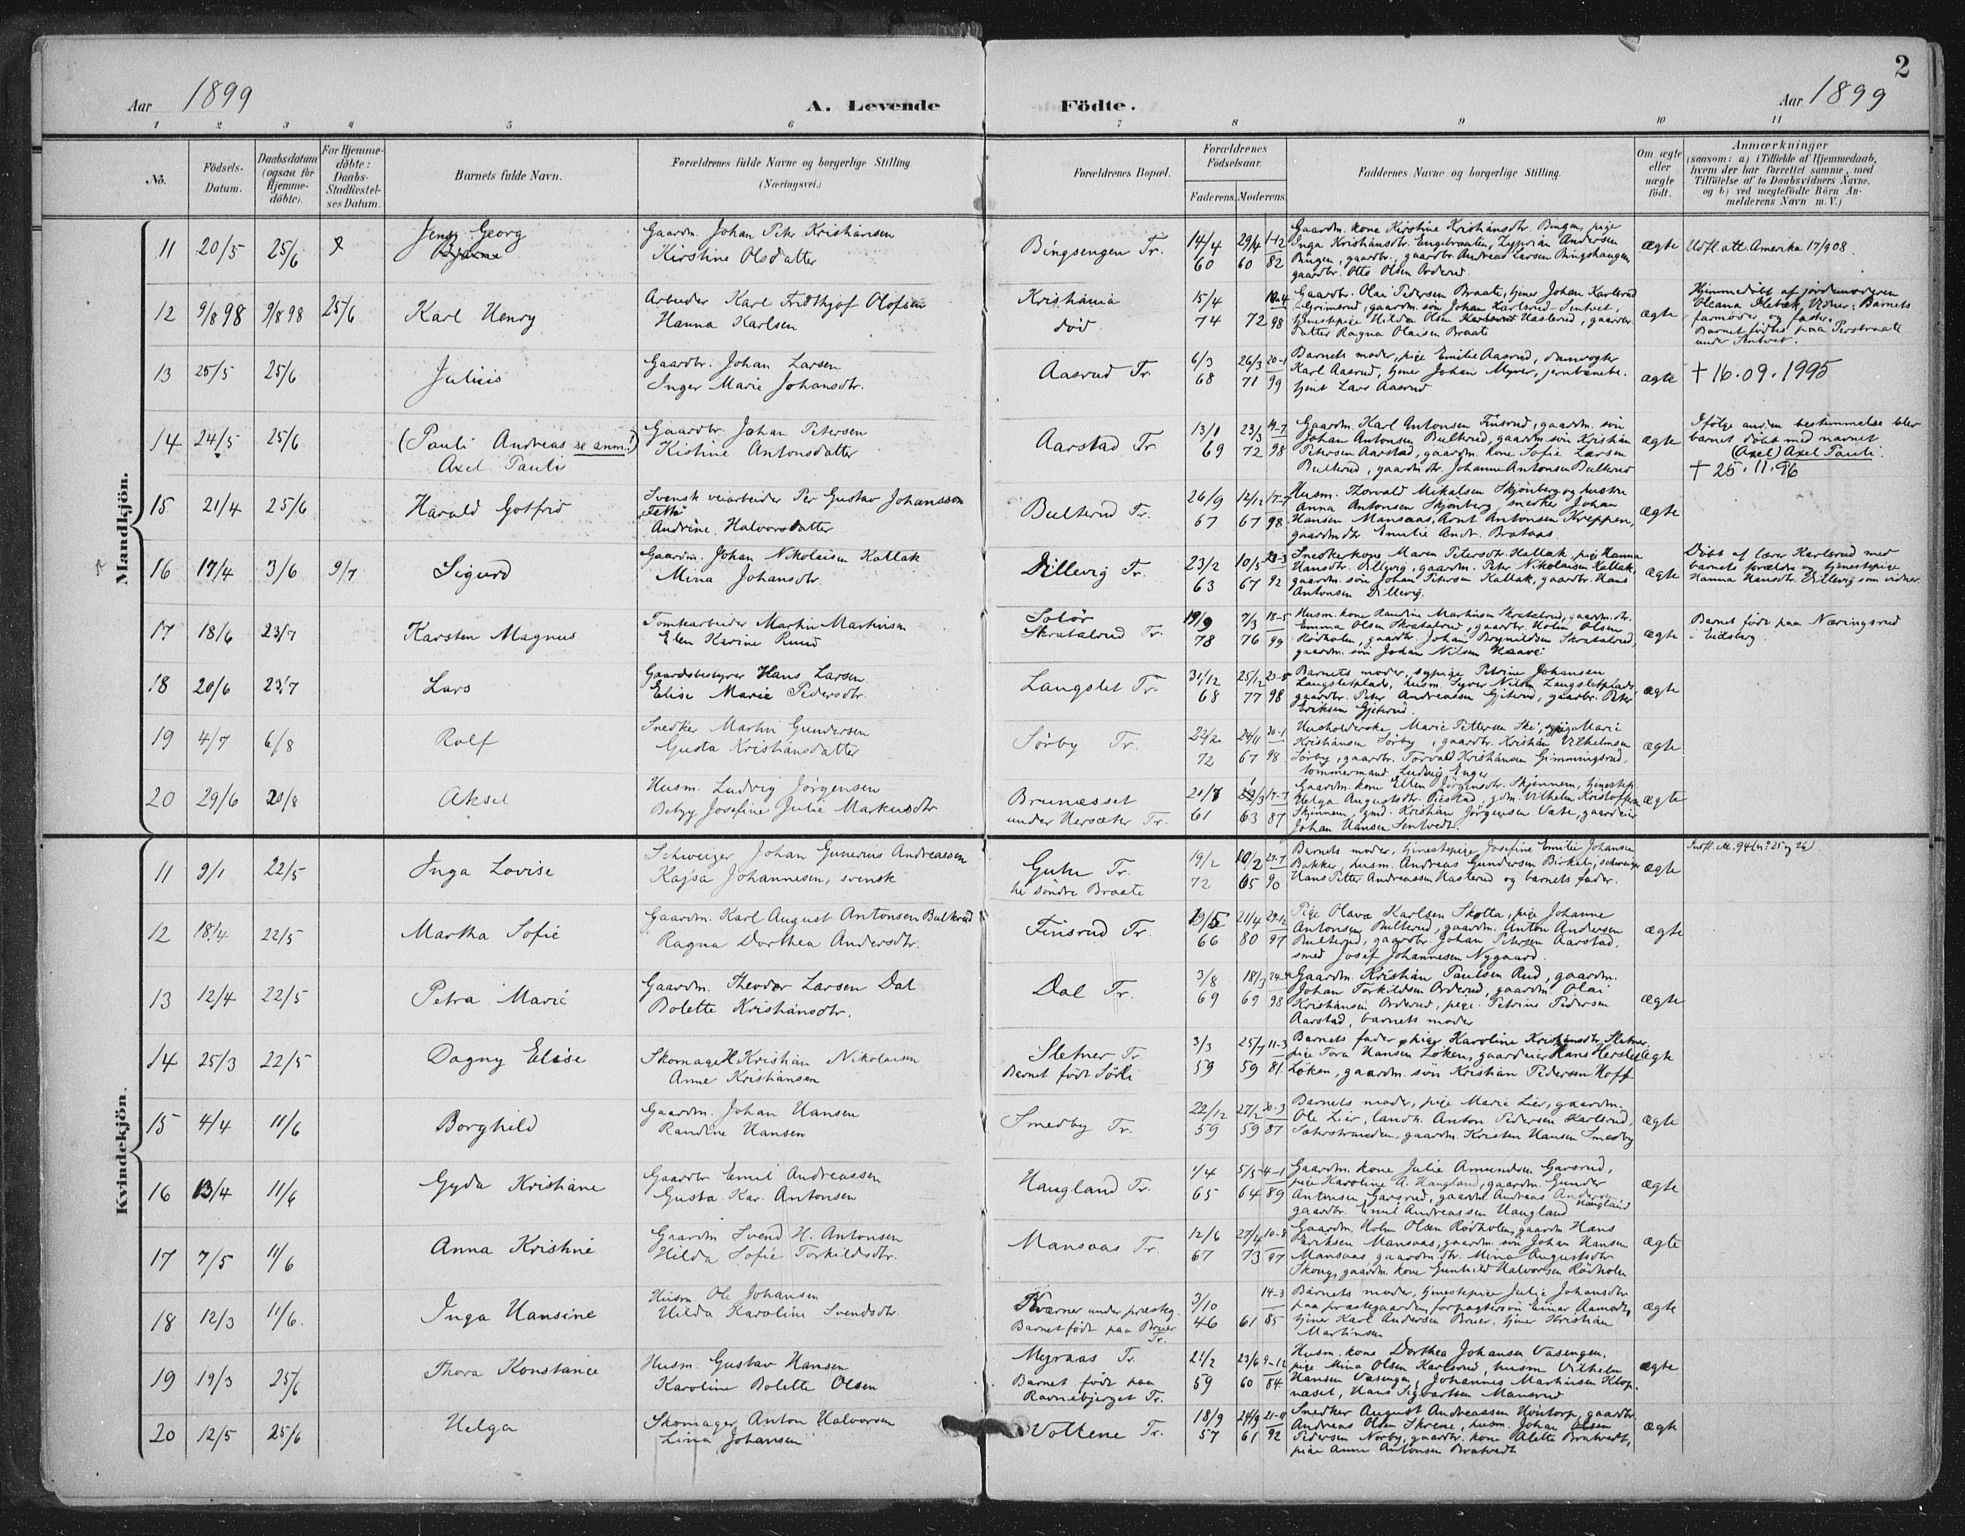 2
Aar 1899
A. Levende Födte.
Aar 1899
1 2 3 4 5 6 7 8 9 10 11
No.
Födsels-Datum.
Daabsdatum (ogsaa for Hjemmedöbte).
For Hjemmedöbte: Daabs-Stadfæstelses Datum.
Barnets fulde Navn.
Forældrenes fulde Navne og borgerlige Stilling (Næringsvei.)
Forældrenes Bopæl.
Forældrenes Födselsaar.
Faderens. Moderens.
Faddernes Navne og borgerlige Stilling.
Om ægte eller uægte födt.
Anmærkninger
(saasom: a) i Tilfælde af Hjemmedaab, hvem der har forrettet samme, med Tilföielse af to Daabsvidners Navne, og b) ved uægtefödte Börn Anmelderens Navn m. V.)
Mandkjön.
11 20/5 25/6 Jens Georg
Gaardm. Johan Peter Kristiansen
Kirstine Olsdatter
Bingsengen Tr. 14/4 60 29/4 60 1-12 82
ægte Udfl. att. Amerika 17/9 08.
12 9/8 98 9/8 98 25/6 Karl Henry
Arbeider Karl Fridthjof Olofsen
Hanna Karlsen
Kristiania
død 15/4 74 72 98
Gaardbr. Olai Pedersen Braate, tjener Johan Karlsrud
datter Ragna Olaisen Braate
ægte Hjemmedøbt af jordemoderen
farmoder og fader.
Barnet fødtes paa
13 25/5 25/6 Julius
Gaardbr. Johan Larsen
Inger Marie Johansdtr.
Aasrud Tr. 6/3 68 26/3 71 20-1 99
Barnets moder, pige Emilie Aasrud,
Karl Aasrud, tjener Johan Myrer, jernbanebe.
tjent Lars Aasrud
ægte + 16.09.1995
14 24/5 25/6 (Pauli Andreas se anm.!)
Axel Pauli
Gaardbr. Johan Petersen
Kistine Antonsdatter
Aarstad Tr. 13/1 69 23/3 72 19-7 98
Gaardm. Karl Antonsen Finsrud, gaardm. søn
Johan Antonsen Bulterud, gaardm. søn Kristian
Petersen Aarstad, gaardm. kone Sofie Larsen
Bulterud, gaardm. dtr. Johanne Antonsen Bulterud
ægte Ifølge anden bestemmelse blev
barnet døbt med navnet
(Axel) Axel Pauli.
+ 25.11.96
15 21/4 25/6 Harald Gotfrid
Svensk veiarbeider Per Gustav Johansson
Andrine Halvorsdatter
Bulterud Tr. 26/9 67 12/12 67 17-7 98
Husm. Thorvald Mikalsen Skjønberg og hustru
Anna Antonsen Skjønberg, snedker Johan
Hansen Mansaas, Arnt Antonsen Kreppen,
ægte
16 17/4 3/6 9/7 Sigurd
Gaardm. Johan Nikolaisen Kallak
Mina Johansdtr.
Dillevig Tr. 23/2 63 10/5 67 23-3 92
Snedkerkone Maren Petersdtr. Kallak, pige Hanna
Hansdtr. Dillevig, gaardm. Peter Nikolaisen Kallak,
gaardm. søn Johan Petersen Kallak, gaardbr. Hans
Antonsen Dillevig.
ægte Døbt af lærer Karlsrud med
barnets forældre og tjenestepige
Hanna Hansdtr. Dillevig som vidner.
17 18/6 23/7 Karsten Magnus
Tomtearbeider Martin Martinsen
Elen Karine Ruud
Solør
Skratalrud Tr. 19/9 78 7/3 76 18-5 99
Husm. kone Randine Martinsen Skratalrud, gaardm. dtr.
Emma Olsen Skratalrud, gaardbr. Holm Olsen
Rødholm, gaardbr. Johan Brynildsen Skratalrud,
gaardm. søn Johan Nilsen Haave
ægte Barnet født paa Næringsrud
i Eidsberg
18 20/6 23/7 Lars
Gaardsbestyrer Hans Larsen
Elise Marie Pedersdtr.
Langslet Tr. 31/12 68 25/12 77 23-5 98
Barnets moder, sypige Petrine Johansen
Langsletplads, husm. Syver Nilsen Langsletplads,
gaardbr. Peter Andreassen Gjeterud, gaardbr. Peter
Eriksen Gjeterud.
ægte
19 4/7 6/8 Rolf
Snedker Martin Gundersen
Gusta Kristiansdatter
Sørby Tr. 22/2 72 24/11 67 20-1 98
Husholderske Marie Pettersen Ski, sypige Marie
Kristiansen Sørby, gaardbr. Kristian Vilhelmsen
Sørby, gaardbr. Torvald Kristiansen Gimmingsrud,
tømmermand Ludvig Enger
ægte
20 29/6 20/8 Aksel
Husm. Ludvig Jørgensen
Betzy Josefine Julie Markusdtr
Brunæsset
under Hersæter Tr. 20/7 61 63 17-7 87
Gaardm. kone Ellen Jørgensdtr. Skjennem, tjenestepi.
Skjennem, gmd. Kristian Jørgensen Vate, gaardeier
Johan Hansen Sentvedt.
ægte
Kvindekjön.
11 9/1 22/5 Inga Lovise
Schweizer Johan Gunerius Andreassen
Kajsa Johannesen, svensk
Gutu Tr.
til søndre Braate 19/2 72 10/2 65 27-7 90
Barnets moder, tjenestepige Josefine Emilie Johansen
Bakker, husm. Andreas Gundersen Birkeli, schweizer
Hans Petter Andreassen Hasterud og barnets fader.
ægte Indfl. M. 94 (nº 25 og 26).
12 18/4 22/5 Martha Sofie
Gaardm. Karl August Antonsen Bulterud
Ragna Dorthea Andersdtr.
Finsrud Tr. 19/5 66 21/4 80 29-12 97
Pige Olava Karlsen Skotta, pige Johanne
Antonsen Bulterud, gaardm. Anton Andersen
Bulterud, gaardbr. Johan Petersen Aarstad.
smed Josef Johannesen Nygaard.
ægte
13 12/4 22/5 Petra Marie
Gaardm. Theodor Larsen Dal
Bolette Kristiansdtr.
Dal Tr. 3/8 69 18/3 69 24-4 98
Gaardm. Kristian Paulsen Rud, gaardm.
Johan Torkildsen Orderud, gaardm. Olai
Kristiansen Orderud, pige Petrine Pedersen
Aarstad, barnets moder
ægte
14 25/3 22/5 Dagny Elise
Skomager Kristian Nikolaisen
Anne Kristiansen
Sletner Tr.
Barnet født Sørli 3/3 59 25/7 59 11-3 81
Barnets fader, pige Karoline Kristiansdtr. Sletner,
pige Tora Hansen Løken, gaardeier Hans Herslet
Løken, gaardm. søn Kristian Pedersen Hoff
ægte
15 4/4 11/6 Borghild
Gaardm. Johan Hansen
Randine Hansen
Smedby Tr. 22/12 59 27/2 59 20-3 87
Barnets moder, pige Marie Lier, gaardm.
Ole Lier, landh. Anton Pedersen Karlsrud,
Sæterstranden, gaardm. Kristen Hansen Smedby
ægte
16 13/4 11/6 Gyda Kristiane
Gaardbr. Emil Andreassen
Gusta Kar. Antonsen
Haugland Tr. 1/4 65 5/5 64 4-1 89
Gaardm. kone Julie Amundsen Garsrud,
pige Karoline A. Haugland, gaardm. Gunder
Antonsen Garsrud, gaardm. Andreas Andersen Haugland
gaardbr. Emil Andreassen Haugland
ægte
17 7/5 11/6 Anna Kristine
Gaardm Svend H. Antonsen
Hilda Sofie Torkildsdtr.
Mansaas Tr. 12/6 67 27/4 73 10-8 97
Gaardm. Holm Olsen Rødholm, gaardm Hans
Lariksen Mansaas, gaardm. søn Johan Hansen
Mansaas, gaardm. dtr. Mina Augustsdtr
Skoug, gaardm. kone Gunhild Halvorsen Rødholm
ægte
18 12/3 11/6. Inga Hansine
Husm. Ole Johansen
Hilda Karoline Svendsdtr.
Kværner under præsteg.
Barnet født paa Bruer Tr. 3/10 46 61 14-3 85
Barnets moder, tjenestepige Julie Johansdtr
paa præstegaarden, forpagtersøn Einar Aamodt,
tjener Karl Andersen Bruer, tjener Kristian
Martinsen
ægte
19 19/3 25/6 Thora Konstance
Husm. Gustav Hansen
Karoline Bolette Olsen
Myraas Tr.
Barnet født paa
Ravnebjerget Tr. 21/2 59 23/6 60 9-12 84
Husm. kone Dorthea Johansen Vasengen,
pige Mina Olsen Karlsrud, husm Vilhelm
Hansen Vasengen, Johannes Martinsen Klop-
næset, Hans Sigvartsen Mansrud
ægte
20 12/5 25/6 Helga
Skomager Anton Halvorsen
Lina Johansen
Vollene Tr. 18/9 57 24/9 61 21-11 92
Snedker August Andreassen Hontorp, gaardbr.
Andreas Olsen Skrene, husm. Johan Olsen
Pedersen Norby, gaardbr. kone Alette Bratvedt,
pige Anne Antonsen Bratvedt
ægte